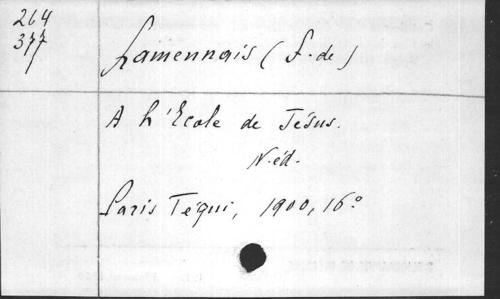 264
377
Lamennais (F. de)
A l'École de Jésus.
N. éd.
Paris Téqui, 1900, 16.º